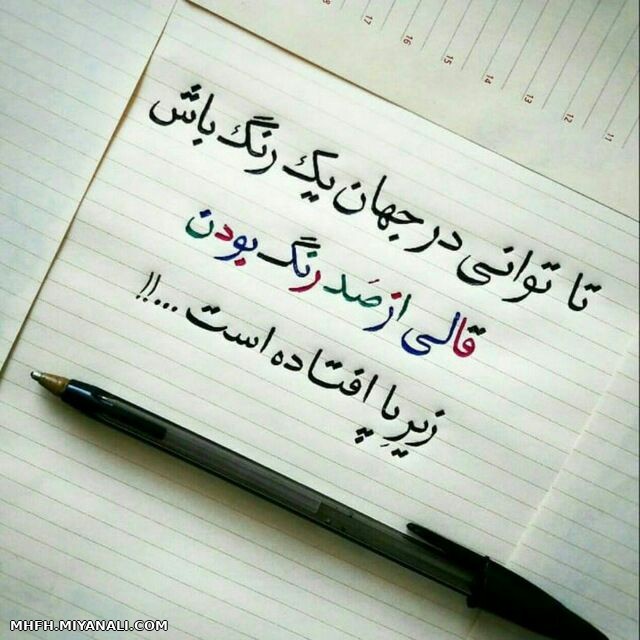 18
17
16
15
14
13
12
11
تا توانی در جهان یک رنگ باش
قالی از صَد رنگ بودن
زیرِ پا افتاده است...!!
MHFH.MIYANALI.COM